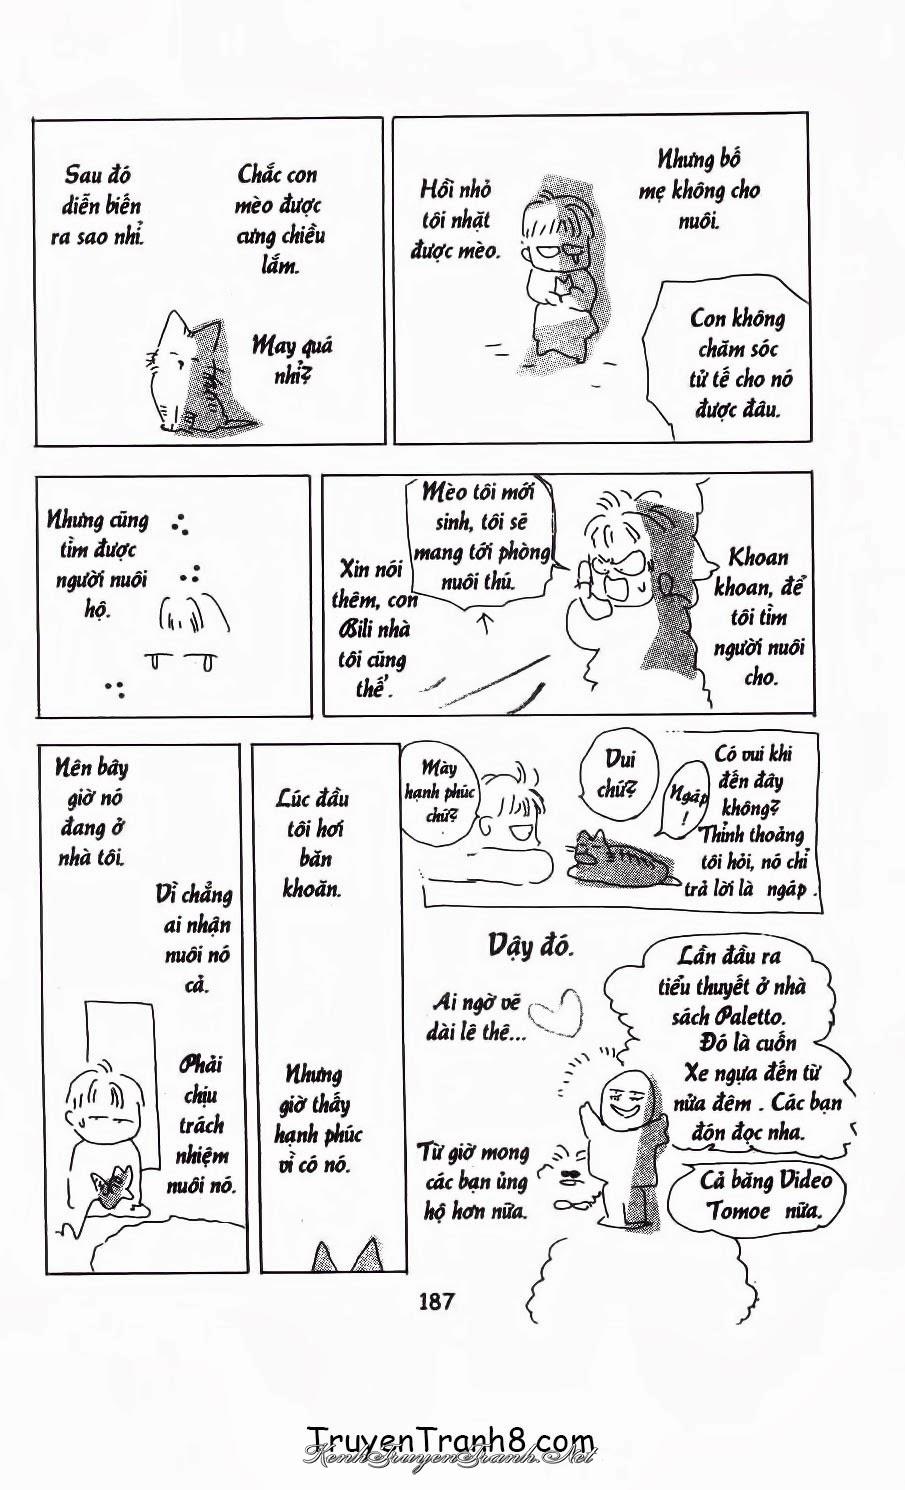 Hồi nhỏ
tôi nhặt
được mèo.
Nhưng bố
mẹ không cho
nuôi.
Con không
chăm sóc
tử tế cho nó
được đâu.
Sau đó
diễn biến
ra sao nhỉ.
Chắc con
mèo được
cưng chiều
lắm.
May quá
nhỉ?
Nhưng cũng
tìm được
người nuôi
hộ.
Mèo tôi mới
sinh, tôi sẽ
mang tới phòng
nuôi thú.
Xin nói
thêm, con
Bili nhà
tôi cũng
thế.
Khoan
khoan, để
tôi tìm
người nuôi
cho.
Nên bây
giờ nó
đang ở
nhà tôi.
Vì chẳng
ai nhận
nuôi nó
cả.
Phải
chịu
trách
nhiệm
nuôi nó.
Lúc đầu
tôi hơi
băn
khoăn.
Nhưng
giờ thấy
hạnh phúc
vì có nó.
Mày
hạnh phúc
chứ?
Vui
chứ?
Ngáp
!
Có vui khi
đến đây
không?
Thỉnh thoảng
tôi hỏi, nó chỉ
trả lời là ngáp.
Vậy đó.
Ai ngờ vẽ
dài lê thê...
Từ giờ mong
các bạn ủng
hộ hơn nữa.
Lần đầu ra
tiểu thuyết ở nhà
sách Paletto.
Đó là cuốn
Xe ngựa đến từ
nửa đêm. Các bạn
đón đọc nha.
Cả băng Video
Tomoe nữa.
187
TruyenTranh8.com
KenhTruyenTranh.Net